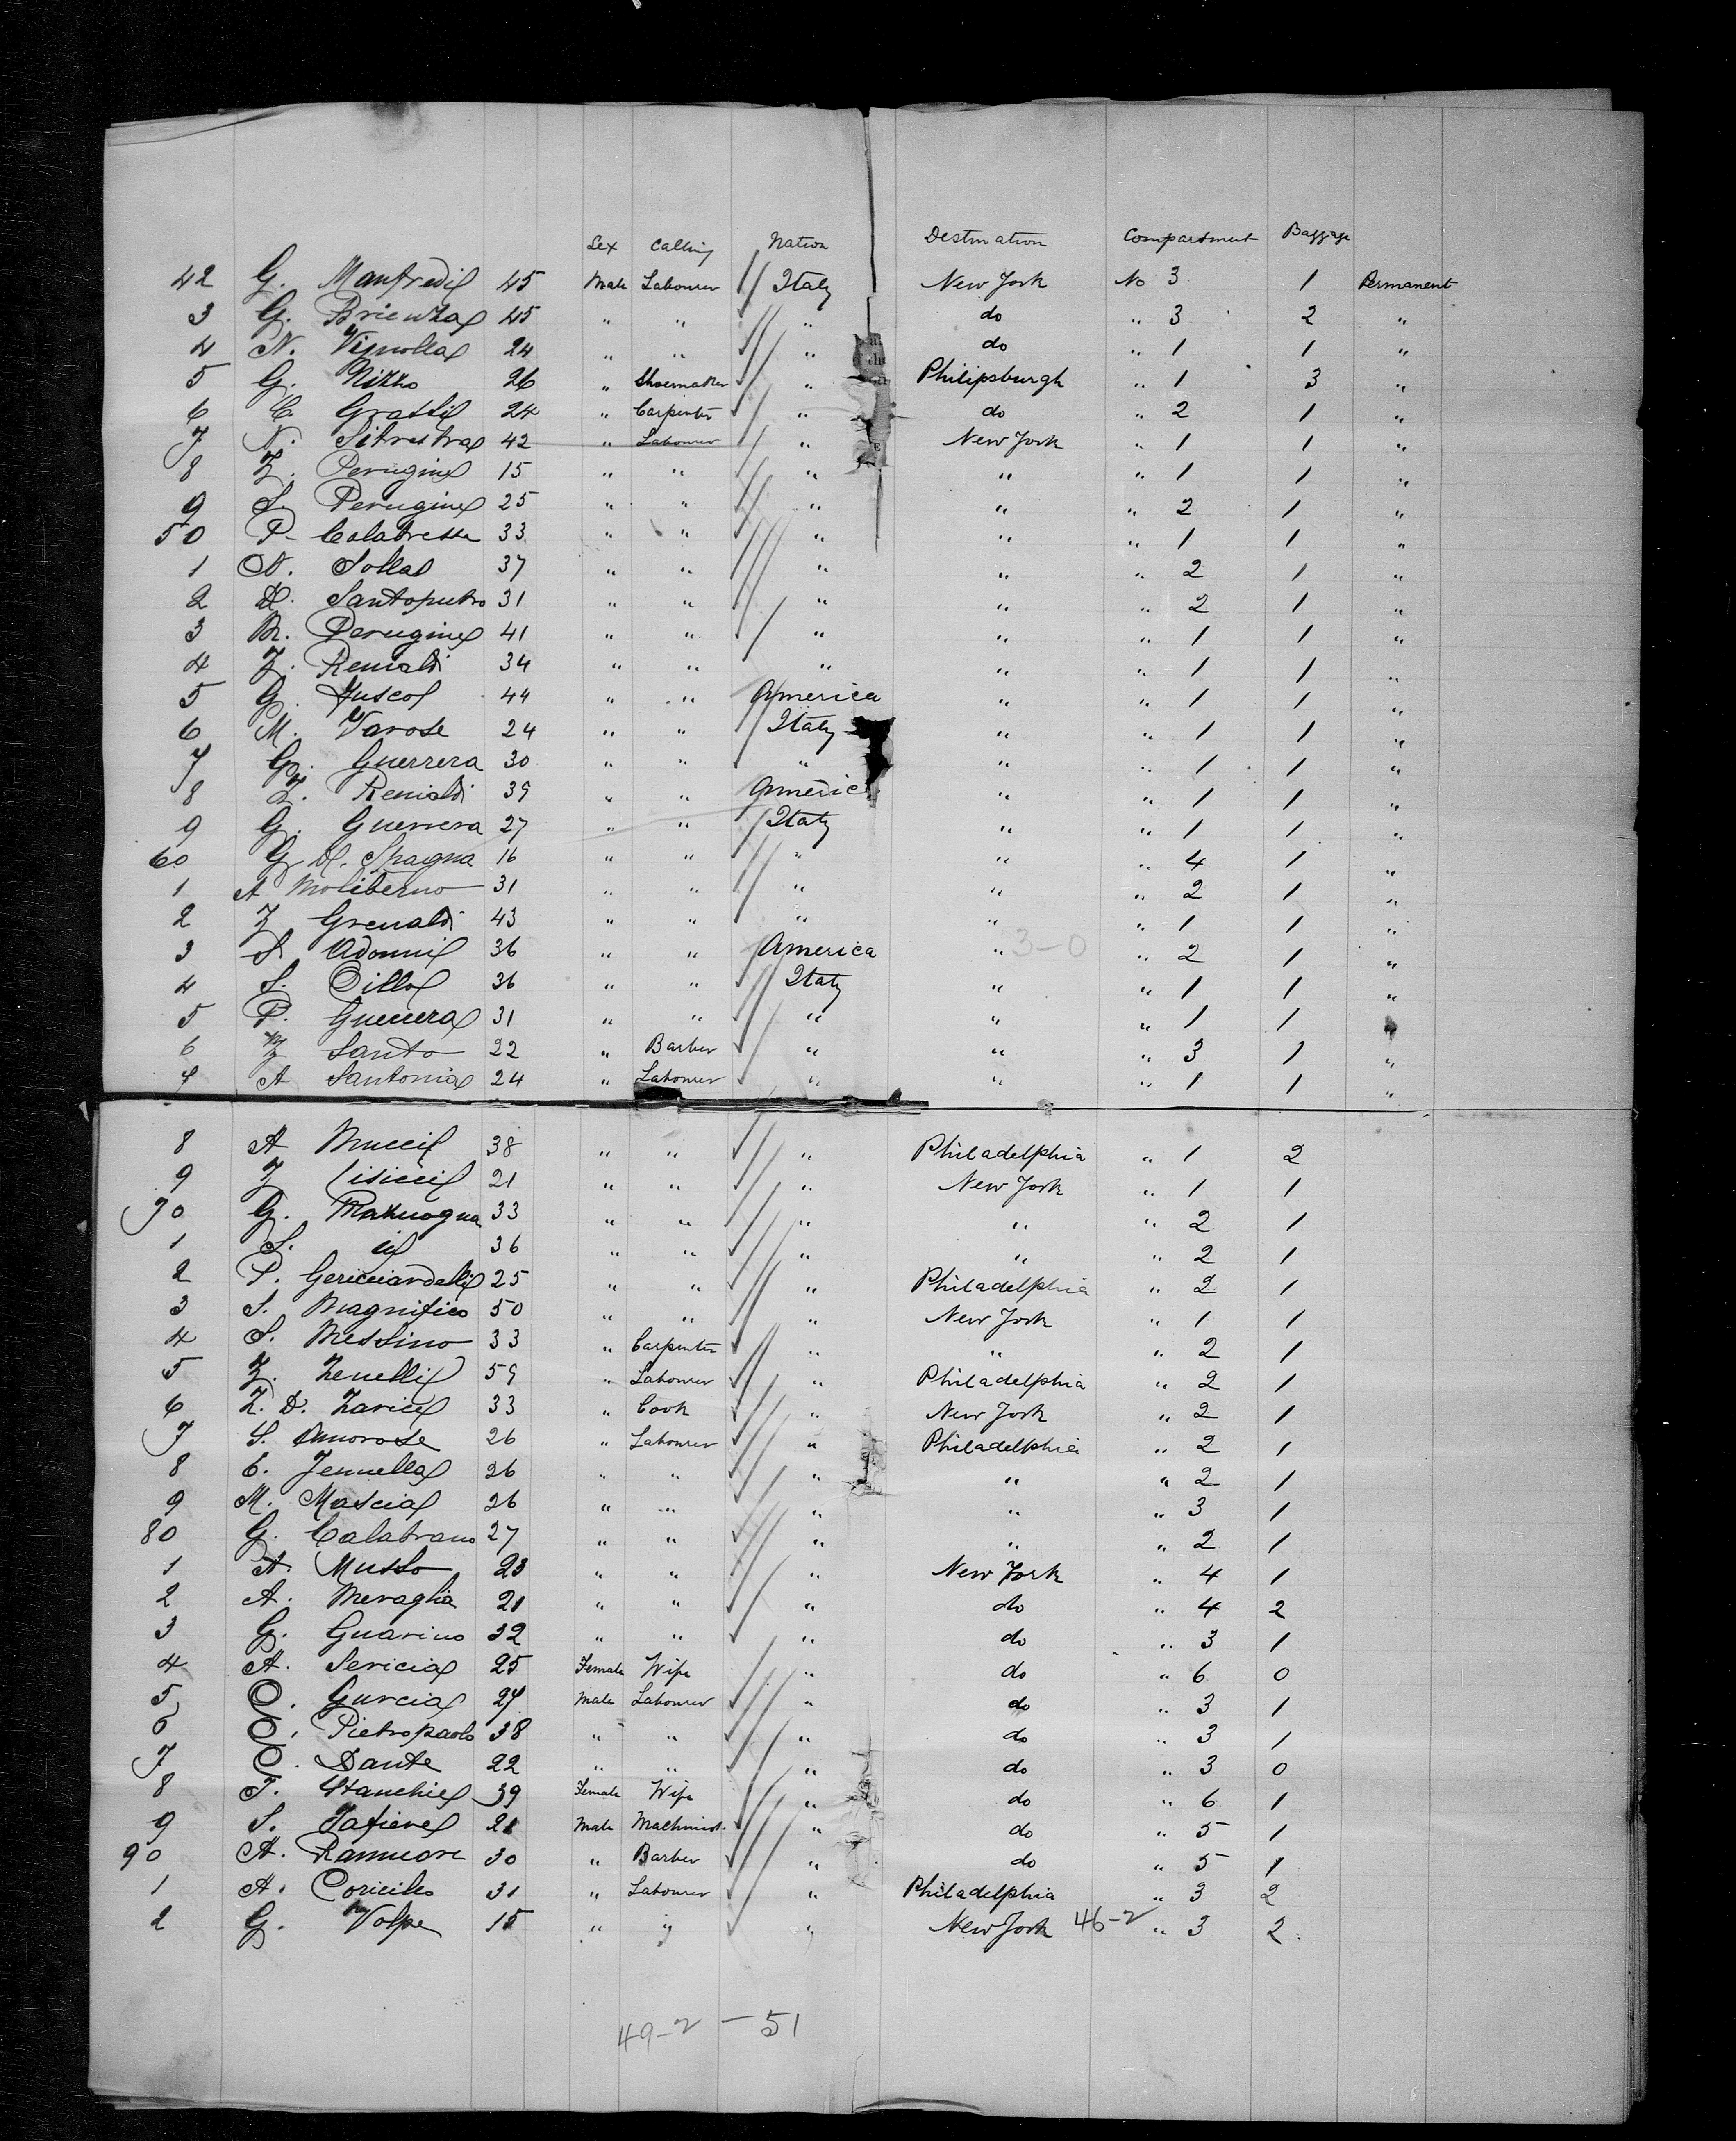 Sex Calling Nation Destination Compartment Baggage
42 G. Manfredi 45 Male Labourer Italy New York No 3 1 Permanent
3 G. Brienza 45 " " " do " 3 2 "
4 N. Vignolla 24 " " " do " 1 1 "
5 G. Nizzo 26 " Shoemaker " Philipsburgh " 1 3 "
6 C Grassi 24 " Carpenter " do " 2 1 "
7 N. Silvestra 42 " Labourer " New York " 1 1 "
8 Z. Perugine 15 " " " " " 1 1 "
9 S. Perugine 25 " " " " " 2 1 "
50 P. Calabressa 33 " " " " " 1 1 "
1 N. Solla 37 " " " " " 2 1 "
2 D. Santoputro 31 " " " " " 2 1 "
3 M. Perugine 41 " " " " " 1 1 "
4 Z. Renialdi 34 " " " " " 1 1 "
5 G. Fusco 44 " " America " " 1 1 "
6 M. Varose 24 " " Italy " " 1 1 "
7 G. Guerrera 30 " " " " " 1 1 "
8 Z. Renialdi 39 " " Americ " " 1 1 "
9 G. Guerrera 27 " " Italy " " 1 1 "
60 G D. Spagna 16 " " " " " 4 1 "
1 A Moliterno 31 " " " " " 2 1 "
2 Z Grenaldi 43 " " " " " 1 1 "
3 S Adonni 36 " " America " 3-0 " 2 1 "
4 S. Cillo 36 " " Italy " " 1 1 "
5 P. Guerrera 31 " " " " " 1 1 "
6 Z Santo 22 " Barber " " " 3 1 "
7 A Santonia 24 " Labourer " " " 1 1 "
8 A Mucci 38 " " " Philadelphia " 1 2
9 Z 21 " " " New York " 1 1
70 G. 33 " " " " " 2 1
1 S. 36 " " " " " 2 1
2 P. Gericciardelli 25 " " " Philadelphia " 2 1
3 S. Magnifico 50 " " " New York " 1 1
4 S. Messino 33 " Carpenter " " " 2 1
5 Z. Zenelli 59 " Labourer " Philadelphia " 2 1
6 Z. D. Zarice 33 " Cook " New York " 2 1
7 S. Amorose 26 " Labourer " Philadelphia " 2 1
8 C. Jennella 26 " " " " " 2 1
9 M. Mascia 26 " " " " " 3 1
80 G. Calabrano 27 " " " " " 2 1
1 A. Musso 23 " " " New York " 4 1
2 A. Meraglia 21 " " " do " 4 2
3 G. Guarino 32 " " " do " 3 1
4 A. Sericia 25 Female Wife " do " 6 0
5 C. Gurcia 27 Male Labourer " do " 3 1
6 C. Pietropaolo 38 " " " do " 3 1
7 C. Dante 22 " " " do " 3 0
8 T. Stanchie 39 Female Wife " do " 6 1
9 S. Tafiere 21 Male Machinist " do " 5 1
90 A. 30 " Barber " do " 5 1
1 A. 31 " Labourer " Philadelphia " 3 2
2 G. Volpe 15 " " " New York 46-2 " 3 2
49-2 - 51